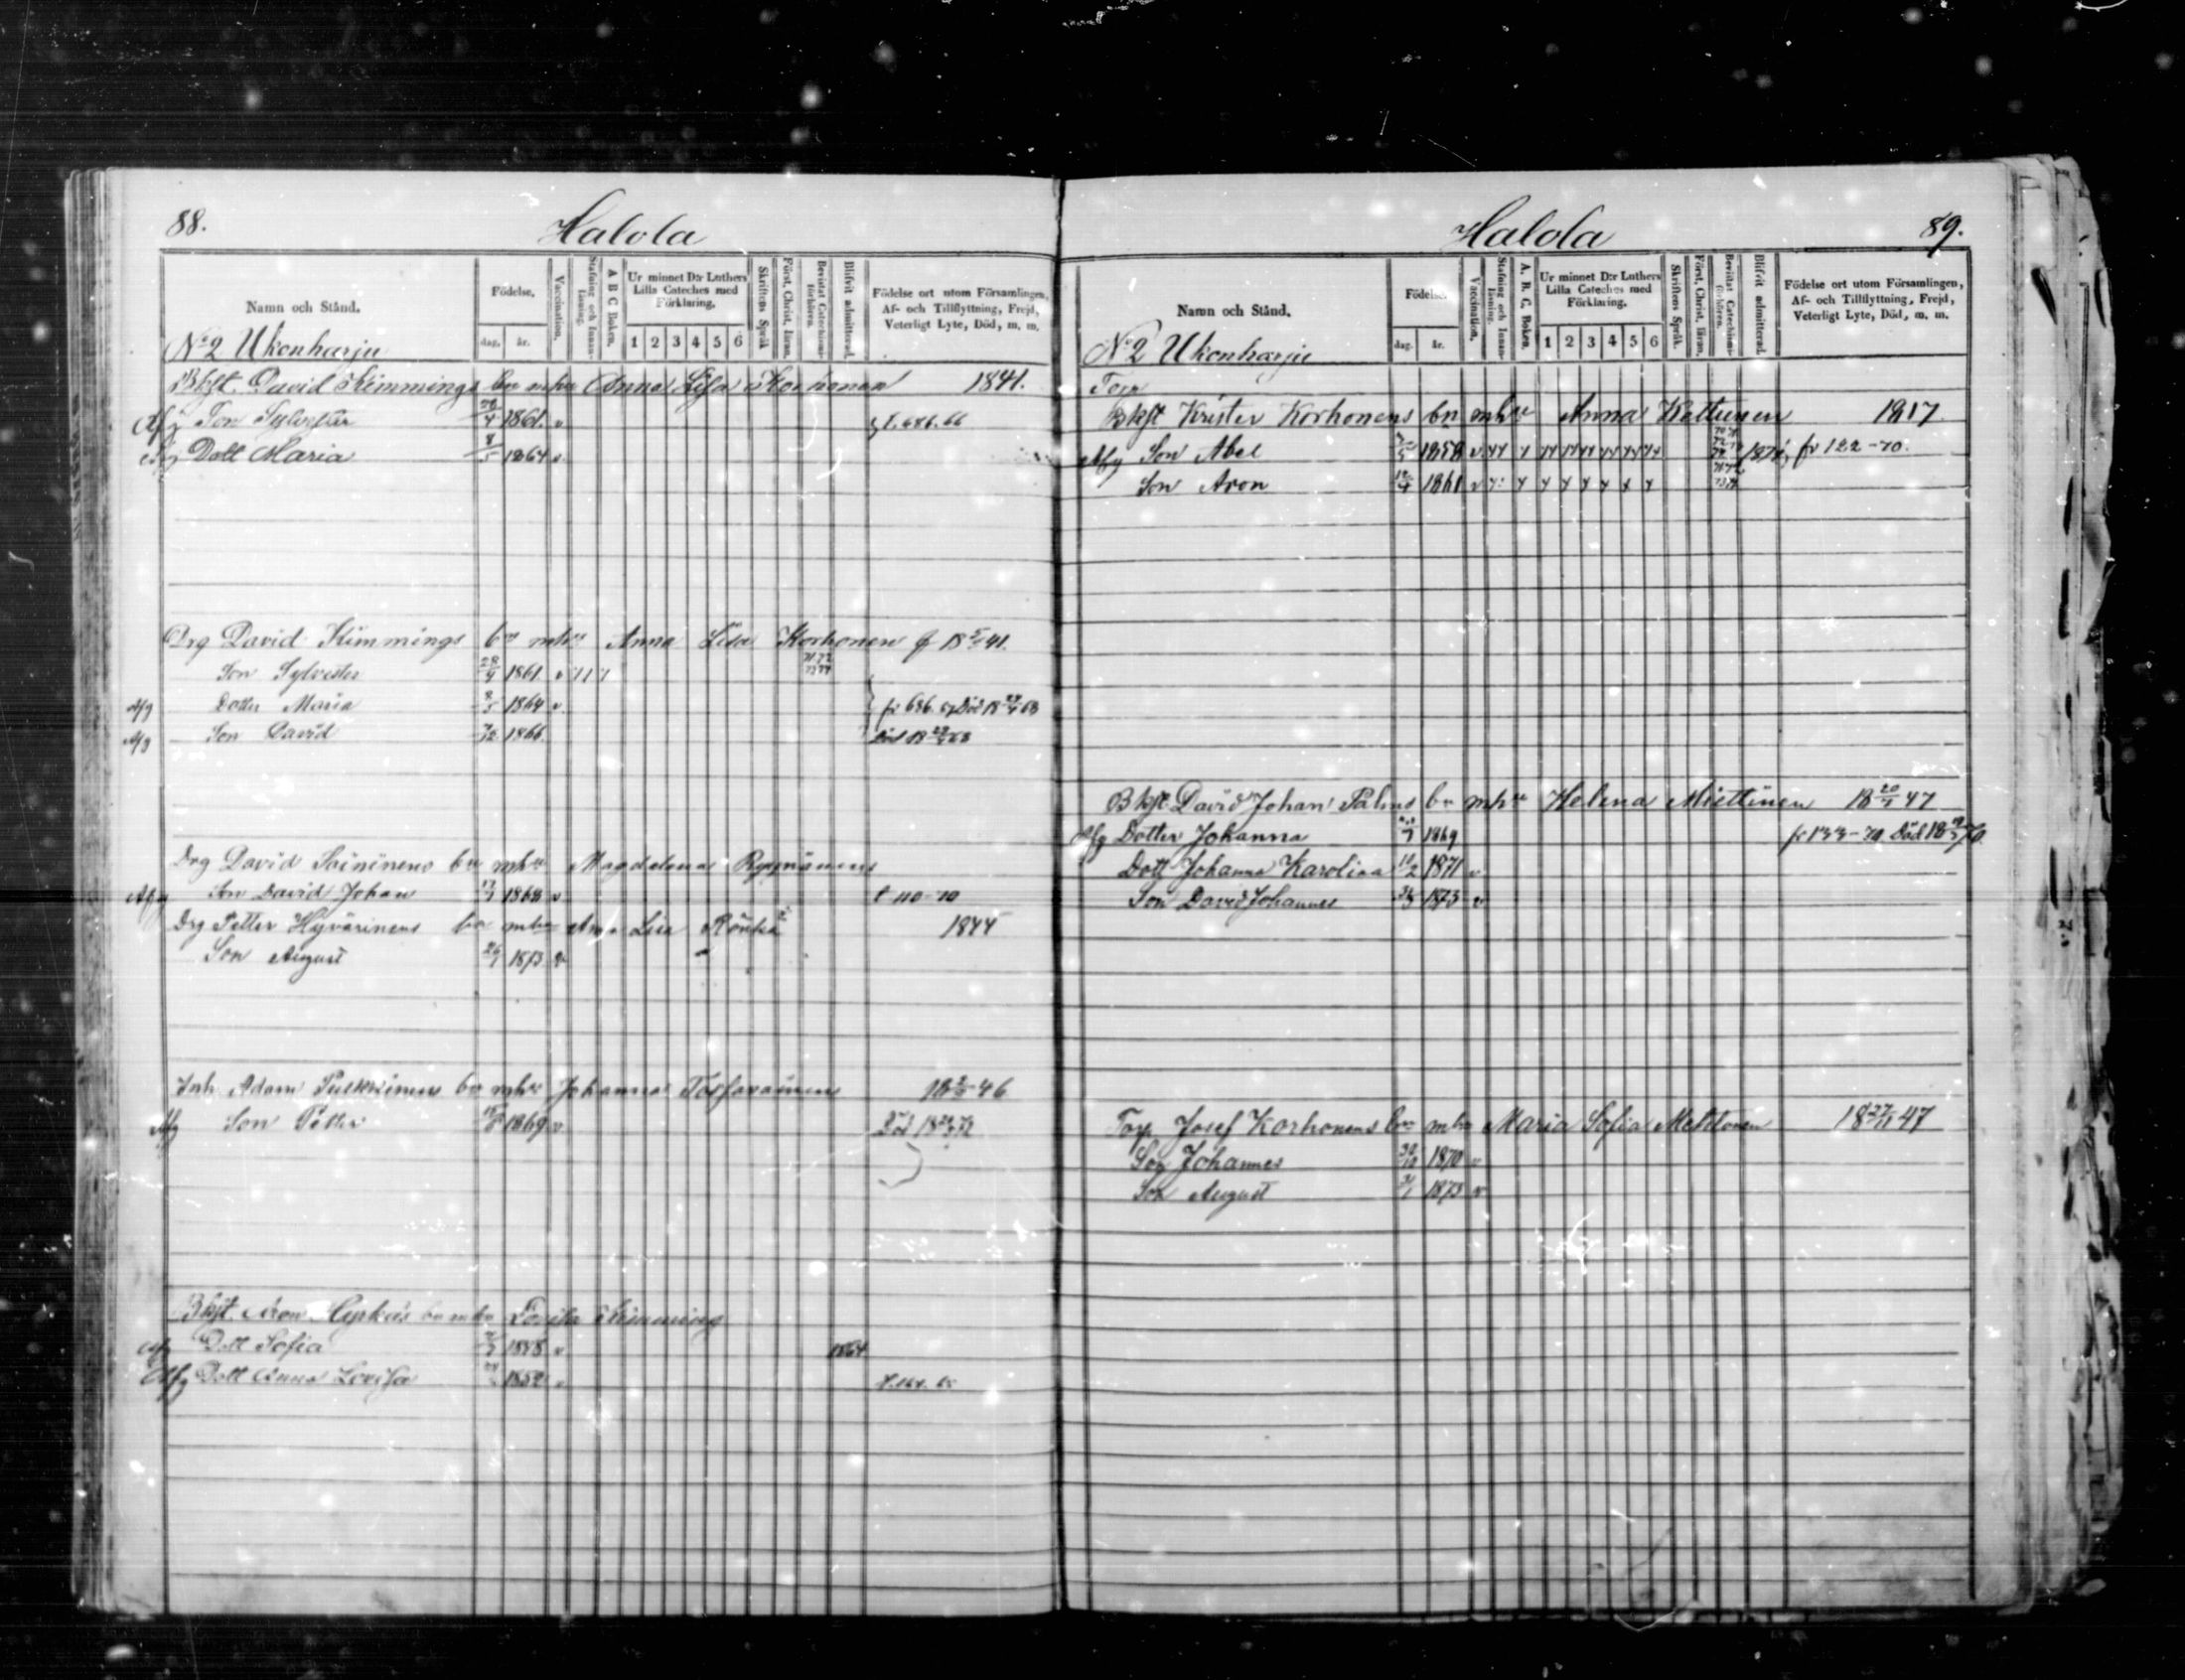 88.
Halola
Namn och Stånd.
Födelse.
dag. år.
Vaccination.
Stafning och Innanläsning.
A B C Boken.
Ur minnet D:r Luthers Lilla Cateches med Förklaring.
1 2 3 4 5 6
Skriftens Språk
Först. Christ. läran.
Bevistat Catechismi-förhören.
Blifvit admitterad.
Födelse ort utom Församlingen, Af- och Tillflyttning, Frejd, Veterligt Lyte, Död, m. m.
No 2 Ukonharju
Bkfst. David Kimmings bn mhu Anna Lisa Korhonen 1841.
Afg Son Sylvester 28/4 1861. v f. 686. 66
Afg Dott Maria 8/5 1864 v
Drg David Kimmings bn mhu Anna Lisa Korhonen f 18 41.
Son Sylvester 28/4 1861 v 71 72 73 74
Afg Dotter Maria 8/5 1864 v fr 686. Död 18 68
Afg Son David 7/12 1866. Död 18 68
Drg David Saininens bn mhu Magdalena Ryynänens
Afg Son David Johan 1868 v f 110-70
Drg Petter Hyvärinens bn mhu Anna Lisa Rönkä 1844
Son August 26/1 1873 v
Inh Adam Pulkkinens bn mhu Johanna Tossavainens 18 46
Afg Son Petter 1869 v Död 18 72
Bkfst. Aron bn mhu Lovisa Kimming
Afg Dott Sofia 1848 v 1864
Afg Dott Anna Lovisa 1852 v
Halola
89.
Namn och Stånd.
Födelse.
dag. år.
Vaccination.
Stafning och Innanläsning.
A. B. C. Boken.
Ur minnet D:r Luthers Lilla Cateches med Förklaring.
1 2 3 4 5 6
Skriftens Språk.
Först. Christ. läran.
Bevistat Catechismi-förhören.
Blifvit admitterad.
Födelse ort utom Församlingen, Af- och Tillflyttning, Frejd, Veterligt Lyte, Död, m. m.
No 2 Ukonharju
Torp
Bkfst Krister Korhonens bn mhu Anna Kettunen 1817
Afg Son Abel 1858 v 1874 fr 122-70.
Son Aron 1861 v
Bkfst David Johan Palms bn mhu Helena Miettinen 18 20/7 47
Afg Dotter Johanna 1869 fr 133-70 Död 18 70
Dott Johanna Karolina 1871 v
Son David Johannes 1873 v
Torp Josef Korhonens bn mhu Maria Sofia Mehtonen 18 27/11 47
Son Johannes 30/10 1870 v
Son August 1873 v